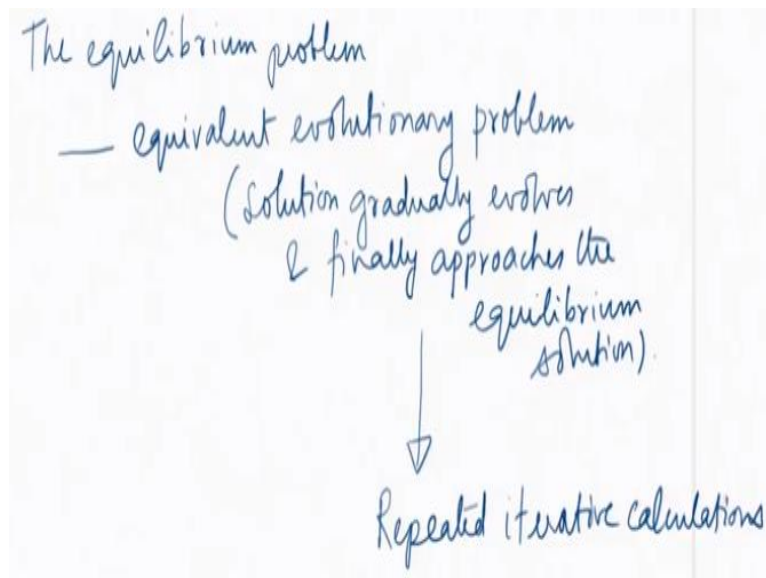 The equilibrium problem
— equivalent evolutionary problem
(Solution gradually evolves
& finally approaches the
equilibrium
solution).
Repeated iterative calculations